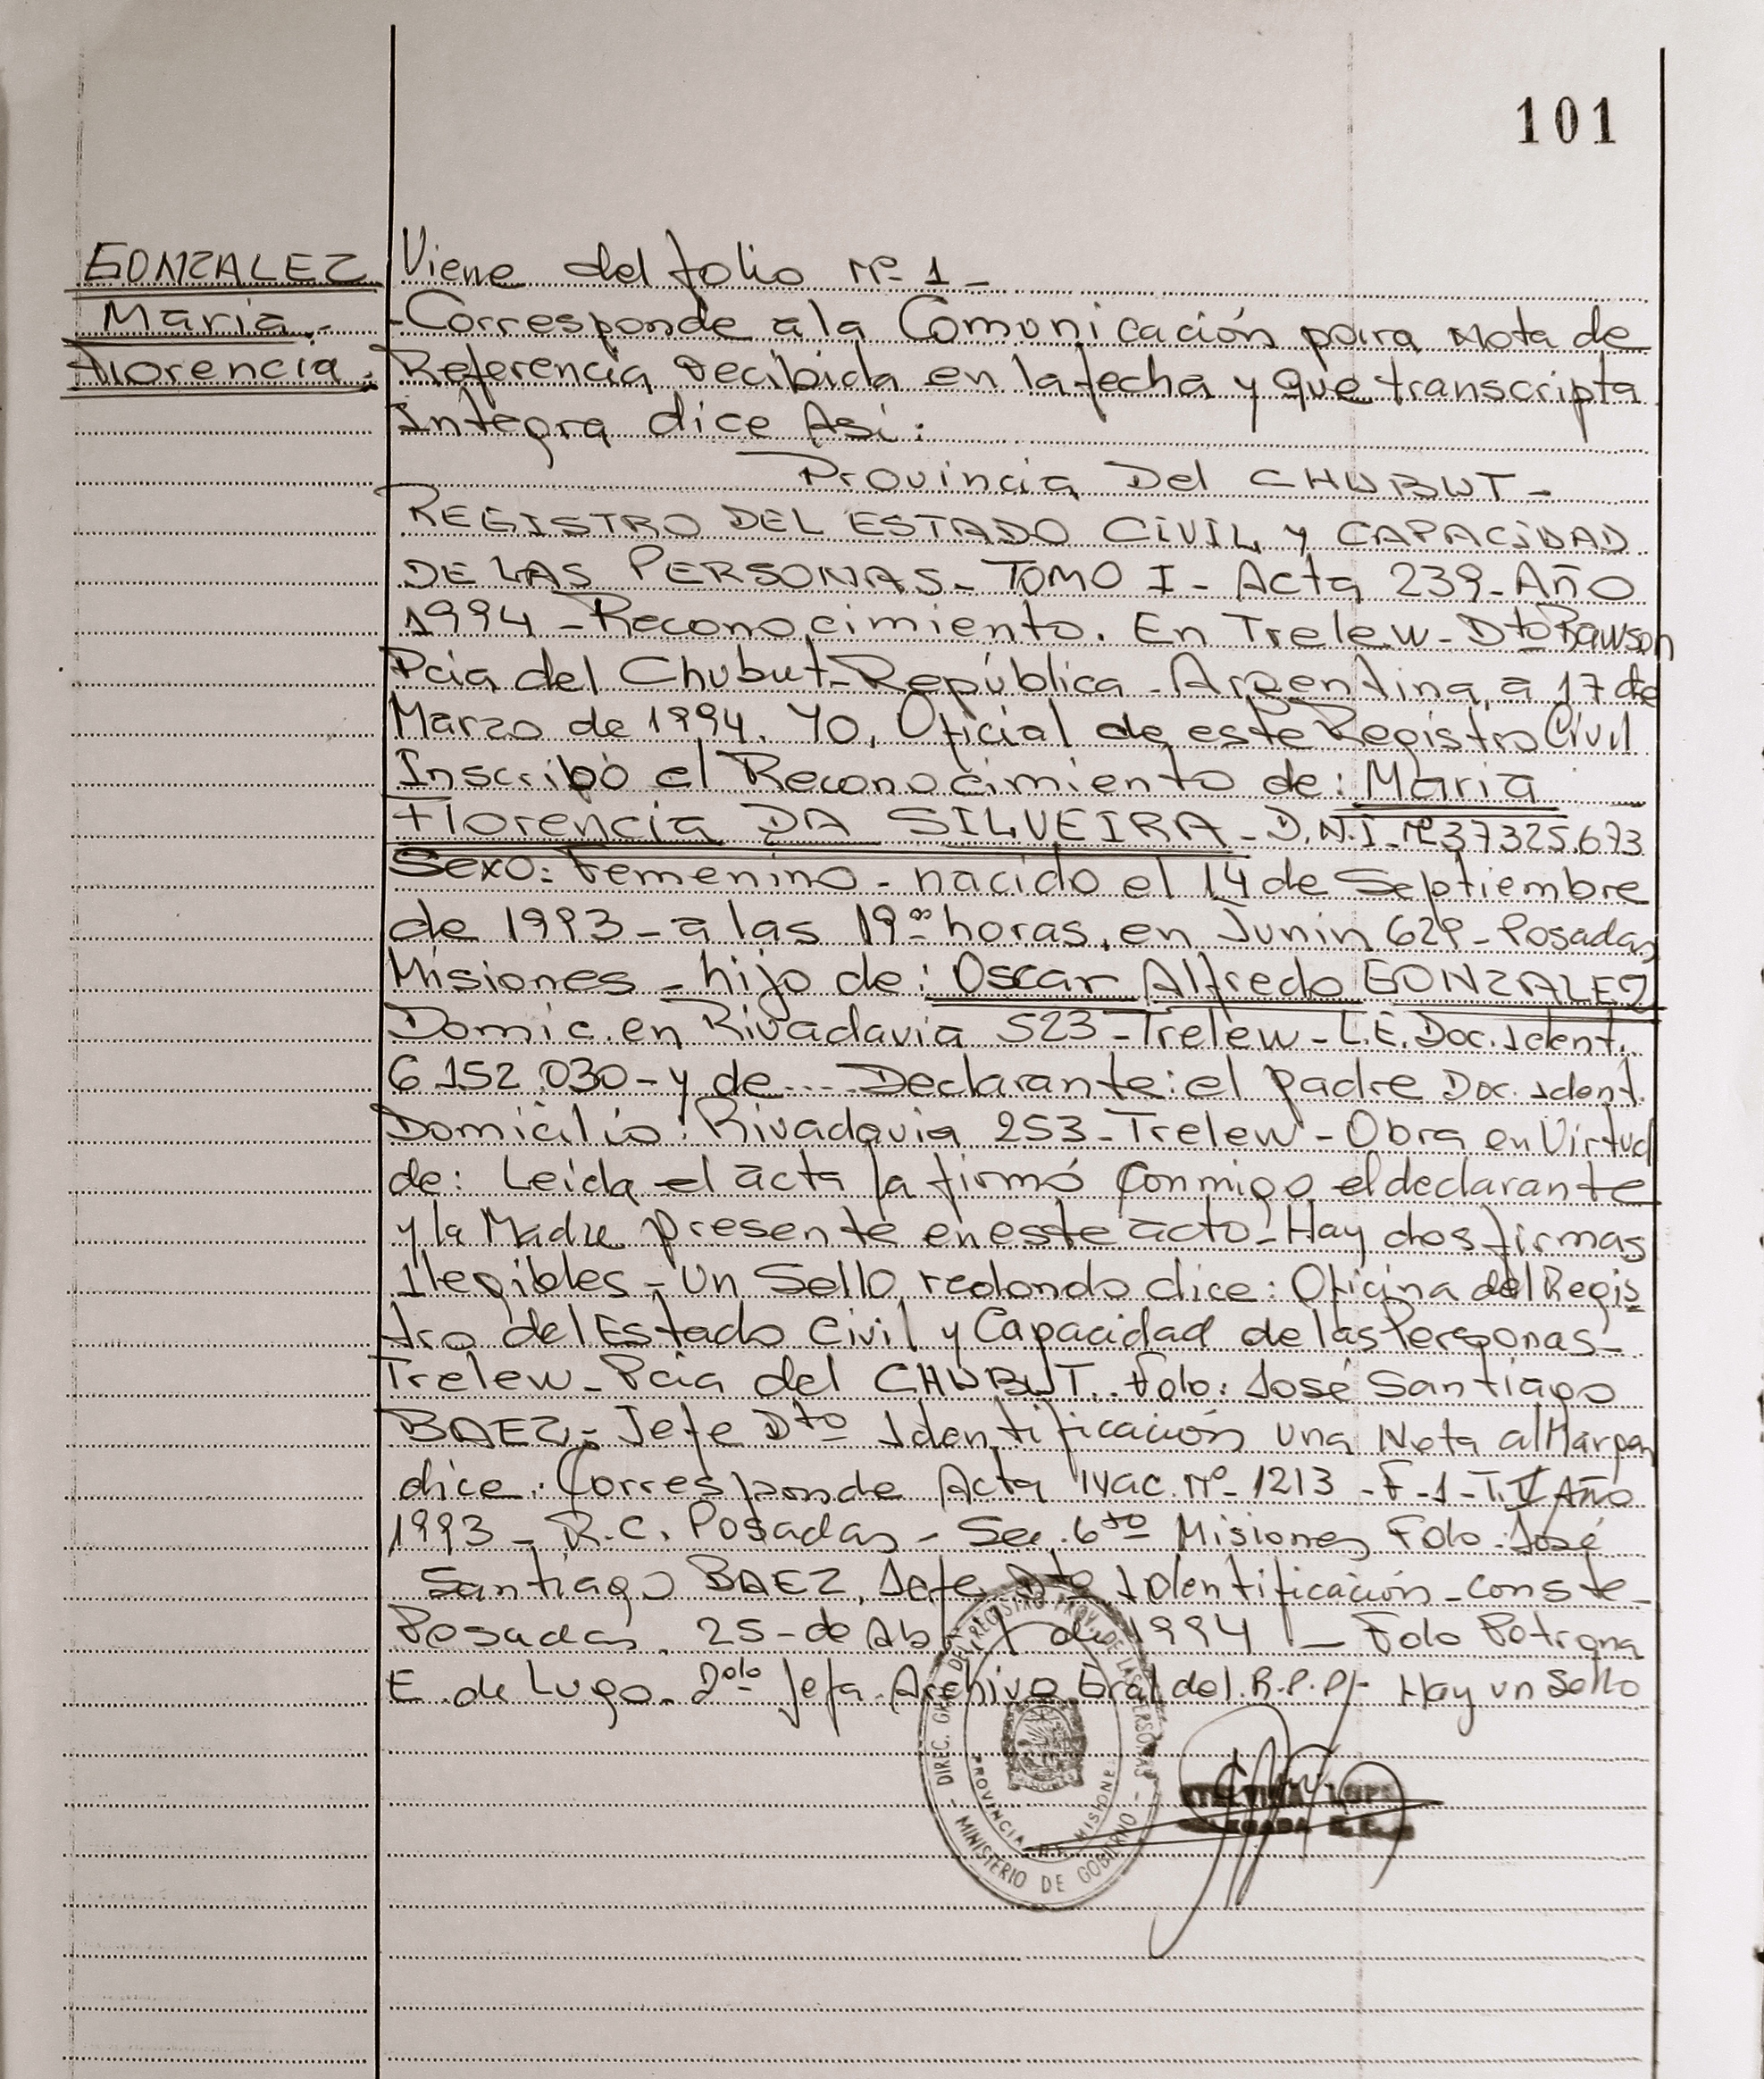 101
GONZALEZ
Maria.-
Florencia.
Viene del folio Nº 1_
-Corresponde a la Comunicación para Nota de
Referencia recibida en la fecha y que transcripta
Integra dice Asi:
Provincia Del CHUBUT_
REGISTRO DEL ESTADO CIVIL y CAPACIDAD
DE LAS PERSONAS_ TOMO I_ Acta 239_Año
1994_Reconocimiento. En Trelew_Dto Rawson
Pcia del Chubut_República_Argentina, a 17 de
Marzo de 1994. YO, Oficial de este Registro Civil
Inscribo el Reconocimiento de: Maria
Florencia DA SILVEIRA_D.N.I_Nº37325.673
Sexo: Femenino_nacido el 14 de Septiembre
de 1993_a las 19 ºº horas, en Junin 629_Posadas
Misiones_hijo de: Oscar Alfredo GONZALEZ
Domic. en Rivadavia 523_Trelew_L.E. Doc. Ident.
6.152.030_y de.... Declarante: el padre Doc. Ident.
Domicilio: Rivadavia 253_Trelew_Obra en Virtud
de: Leida el acta la firmó conmigo el declarante
y la Madre presente en este acto_Hay dos firmas
Ilegibles_Un Sello redondo dice: Oficina del Regis
tro del Estado Civil y Capacidad de las Personas_
Trelew_Pcia del CHUBUT. Fdo: José Santiago
BAEZ_ Jefe Dto Identificación una Nota al Margen
dice: Corresponde Acta Nac. Nº 1213_F_1_T.V Año
1993_R.C. Posadas_Sec. 6ta Misiones Fdo. José
Santiago BAEZ, Jefe Dto Identificación_conste_
Posadas, 25_de Abril de 1994_Fdo Petrona
E. de Lugo. Jefa Archivo Gral del R.P.P/_ Hay un Sello
DIREC. GRAL. DEL REGISTRO PROV. DE LAS PERSONAS
PROVINCIA DE MISIONES
- MINISTERIO DE GOBIERNO -